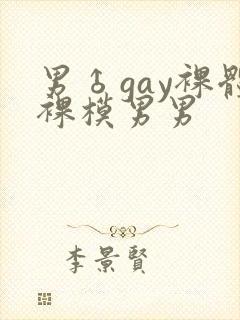 男♂gay裸體
裸模男男
李景賢